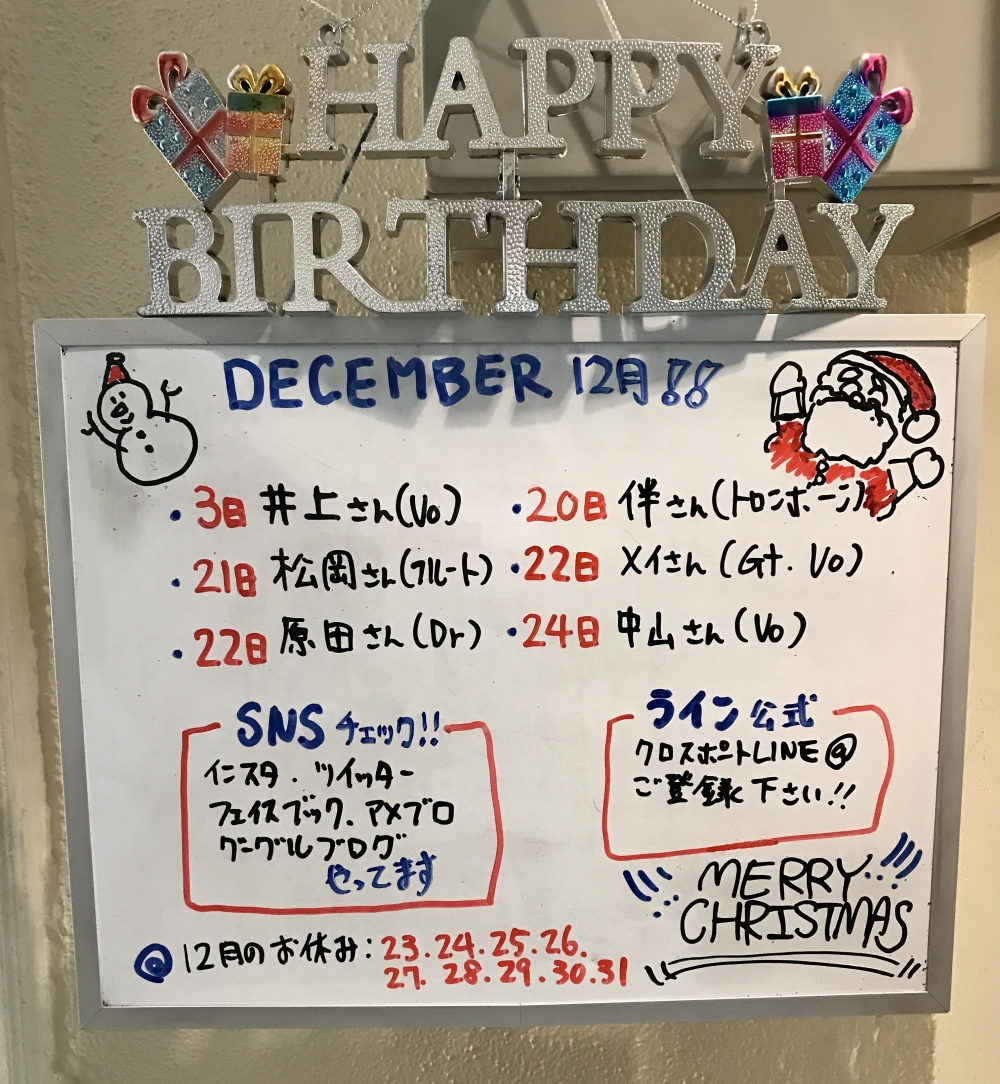 HAPPY
BIRTHDAY
DECEMBER 12月!!
・3日 井上さん(Vo)
・20日 伴さん(トロンボーン)
・21日 松岡さん(フルート)
・22日 メイさん(Gt. Vo)
・22日 原田さん(Dr)
・24日 中山さん(Vo)
SNS チェック!!
インスタ. ツイッター
フェイスブック. アメブロ
グーグルブログ
やってます
ライン公式
クロスポイントLINE@
ご登録下さい!!
MERRY
CHRISTMAS
@12月のお休み:23.24.25.26.
27.28.29.30.31